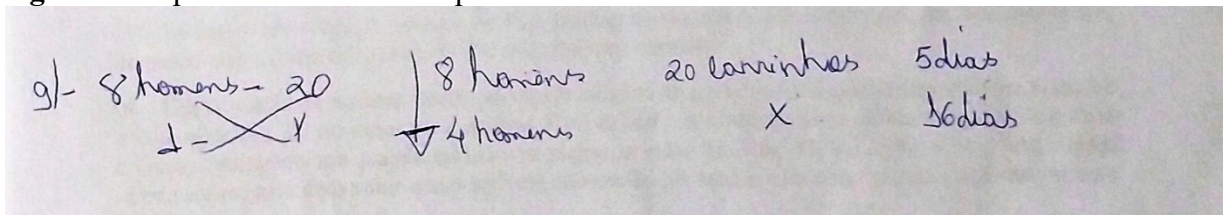 9)- 8 homens - 20 8 homens 20 carrinhos 5 dias
1 - x 4 homens x 16 dias